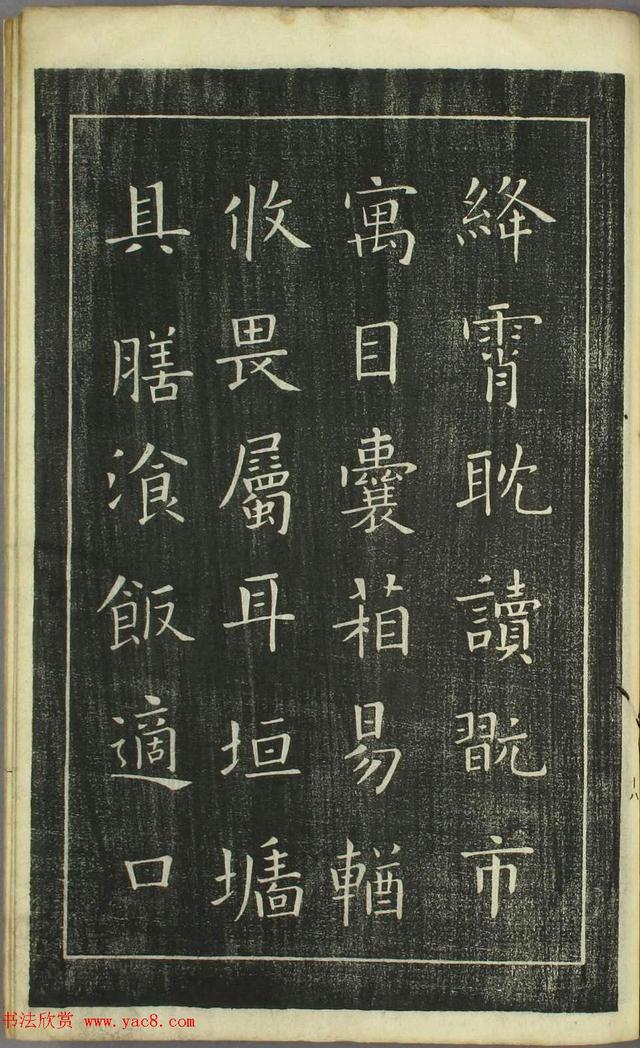 絳霄耽讀翫市
寓目囊葙易輶
攸畏屬耳垣墻
具膳飡飯適口
十八
书法欣赏 www.yac8.com